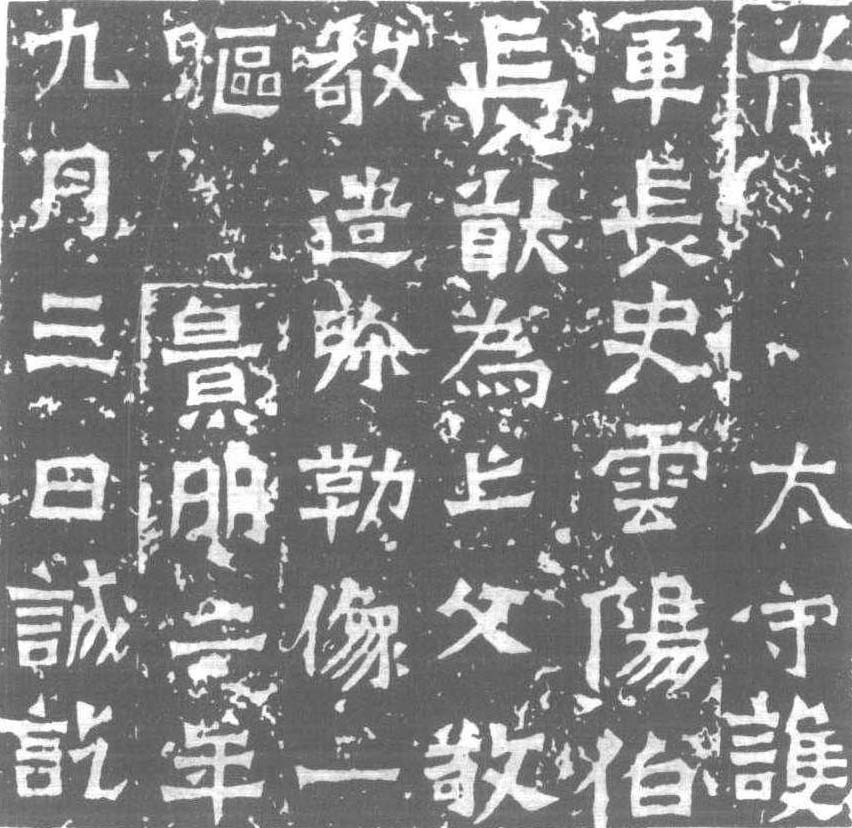 太守護
軍長史雲陽伯
長猷為亡父敬
敬造弥勒像一
軀景明二年
九月三日誠訖